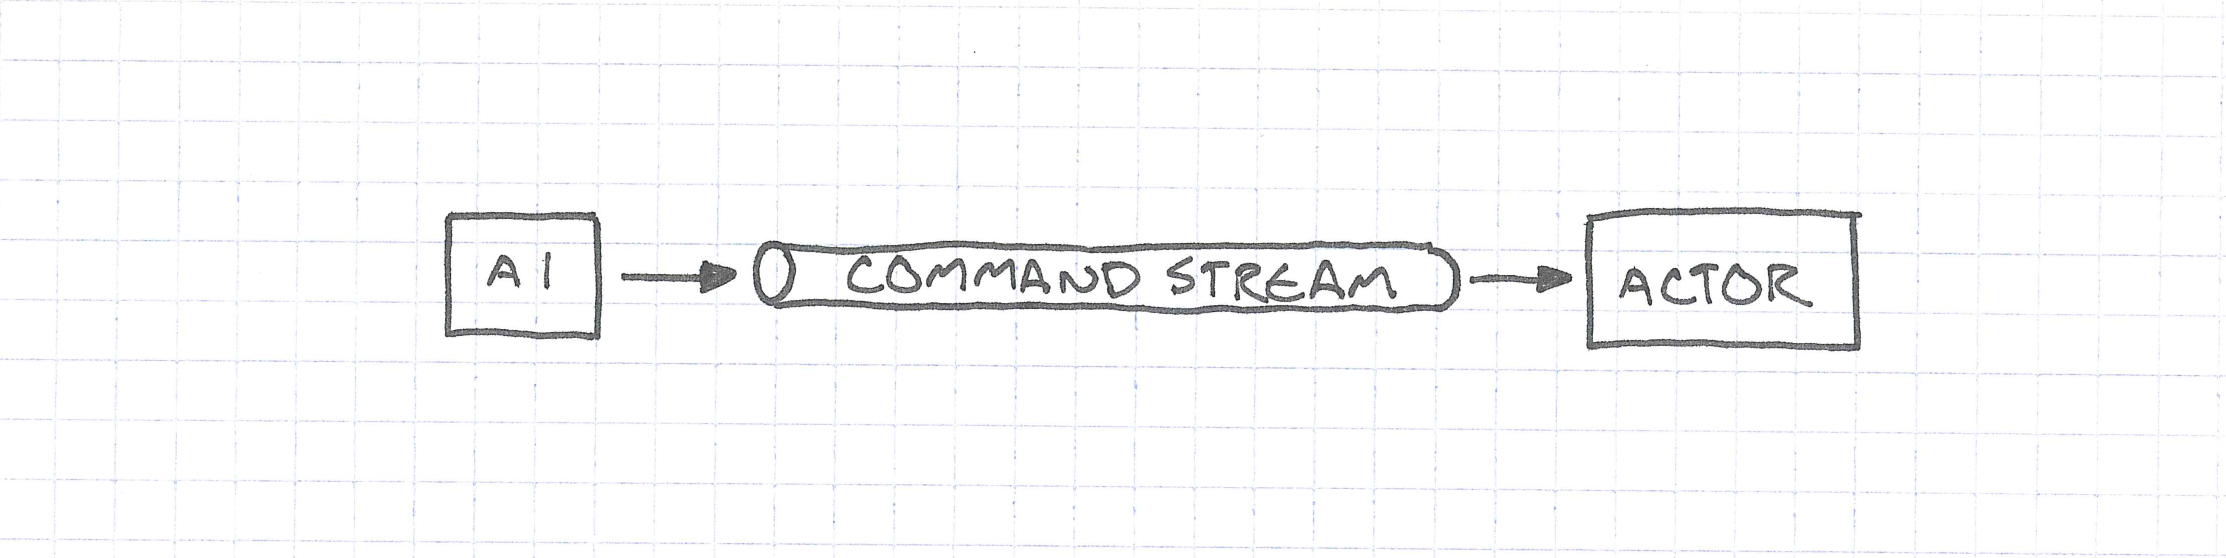 AI
COMMAND STREAM
ACTOR